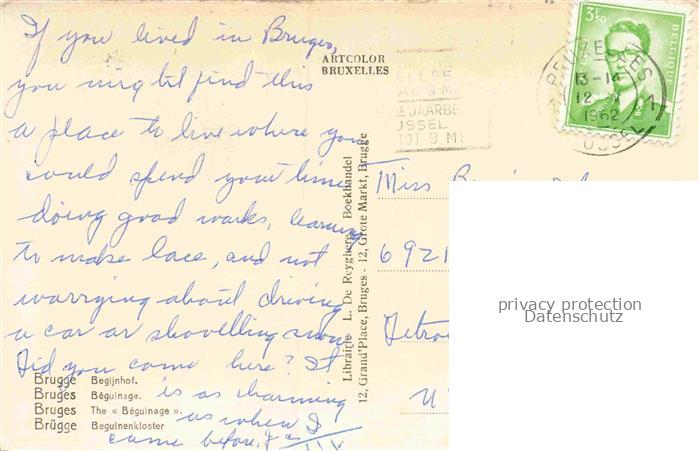 If you lived in Bruges,
you might find this
a place to live where you
could spend your time
doing good works, learning
to make lace, and not
worrying about driving
a car or shovelling snow
Did you come here? It
is as charming
as when I
came before.
Brugge Begijnhof.
Bruges Béguinage.
Bruges The « Béguinage ».
Brügge Beguinenkloster
ARTCOLOR
BRUXELLES
Librairie L. De Reyghere Boekhandel
12, Grand'Place, Bruges - 12, Grote Markt, Brugge
3F50
BELGIQUE
13-14
12
1962
JAARBE
Miss
6921
Detroi
U
privacy protection
Datenschutz